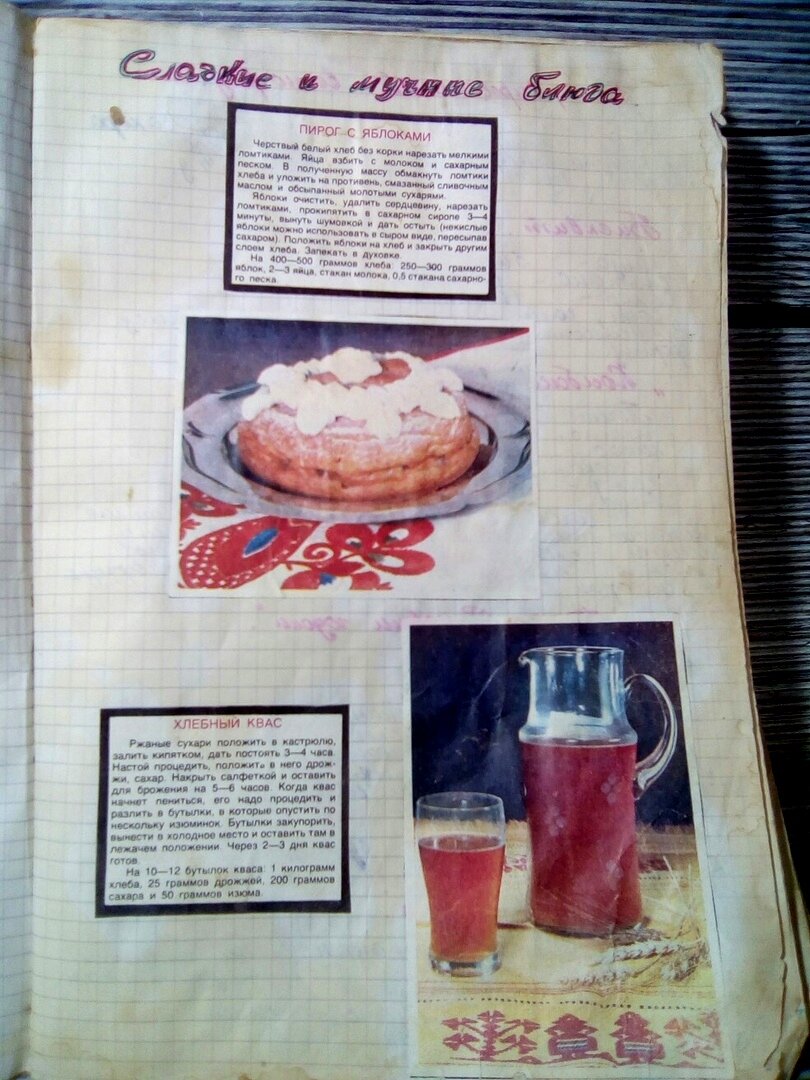 Сладкие и мучние блюда
ПИРОГ С ЯБЛОКАМИ
Черствый белый хлеб без корки нарезать мелкими
ломтиками. Яйца взбить с молоком и сахарным
песком. В полученную массу обмакнуть ломтики
хлеба и уложить на противень, смазанный сливочным
маслом и обсыпанный молотыми сухарями.
Яблоки очистить, удалить сердцевину, нарезать
ломтиками, прокипятить в сахарном сиропе 3—4
минуты, вынуть шумовкой и дать остыть (некислые
яблоки можно использовать в сыром виде, пересыпав
сахаром). Положить яблоки на хлеб и закрыть другим
слоем хлеба. Запекать в духовке.
На 400—500 граммов хлеба: 250—300 граммов
яблок, 2—3 яйца, стакан молока, 0,5 стакана сахарно-
го песка.
ХЛЕБНЫЙ КВАС
Ржаные сухари положить в кастрюлю,
залить кипятком, дать постоять 3—4 часа.
Настой процедить, положить в него дрож-
жи, сахар. Накрыть салфеткой и оставить
для брожения на 5—6 часов. Когда квас
начнет пениться, его надо процедить и
разлить в бутылки, в которые опустить по
нескольку изюминок. Бутылки закупорить,
вынести в холодное место и оставить там в
лежачем положении. Через 2—3 дня квас
готов.
На 10—12 бутылок кваса: 1 килограмм
хлеба, 25 граммов дрожжей, 200 граммов
сахара и 50 граммов изюма.